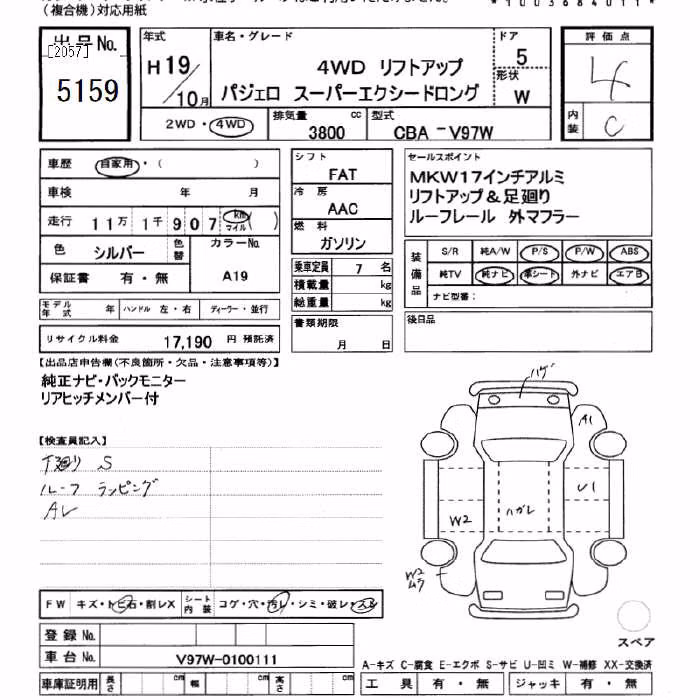 (複合機)対応用紙
*1003684011*
出品No.
[2057]
5159
年式
H19/10月
車名・グレード
4WD リフトアップ
パジェロ スーパーエクシードロング
ドア
5
形状
W
評価点
4
内装
C
2WD・4WD
排気量
3800
cc
型式
CBA-V97W
車歴
自家用・( )
車検
年 月
走行
11万 1千 907
km
マイル
( )
色
シルバー
色替
カラーNo.
A19
保証書
有・無
モデル年式
年
ハンドル 左・右
ディーラー・並行
リサイクル料金
17,190 円 預託済
シフト
FAT
冷房
AAC
燃料
ガソリン
乗車定員 7 名
積載量 kg
総重量 kg
書類期限
月 日
セールスポイント
MKW17インチアルミ
リフトアップ&足廻り
ルーフレール 外マフラー
装備品
S/R 純A/W P/S P/W ABS
純TV 純ナビ 革シート 外ナビ エアB
ナビ型番:
後日品
【出品店申告欄(不良箇所・欠品・注意事項等)】
純正ナビ・バックモニター
リアヒッチメンバー付
【検査員記入】
下廻り S
ルーフ ラッピング
ハゲ
A1
U1
W2
ハガレ
W2
ムラ
FW キズ・トビ石・割レX
シート内装
コゲ・穴・汚レ・シミ・破レ・スレ
登録No.
車台No.
V97W-0100111
車庫証明用
長さ cm 幅 cm 高さ cm
スペア
A-キズ C-腐食 E-エクボ S-サビ U-凹ミ W-補修 XX-交換済
工具 有・無 ジャッキ 有・無